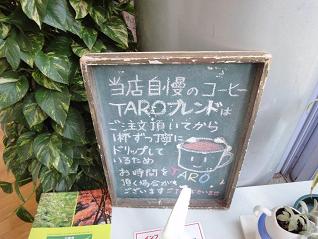 当店自慢のコーヒー
TAROブレンドは
ご注文頂いてから
1杯ずつ丁寧に
ドリップして
いるため
お時間を
頂く場合が
ございます
TARO